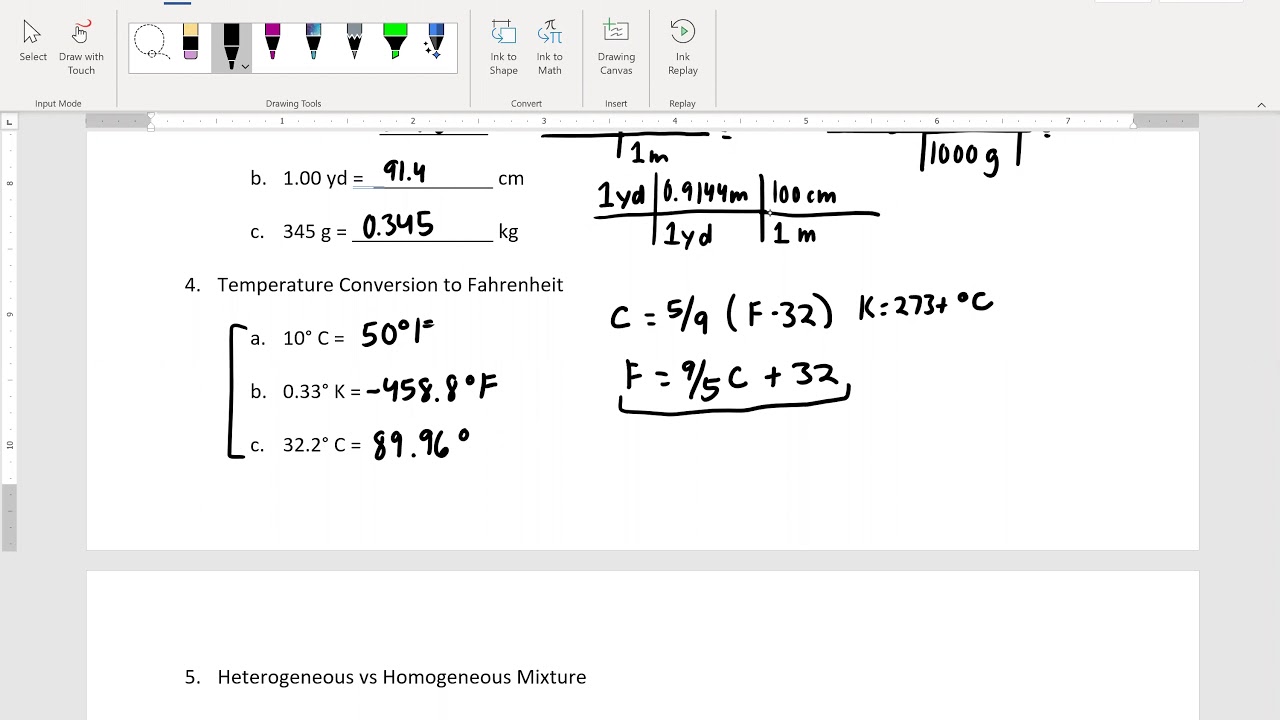 Select
Draw with Touch
Input Mode
Drawing Tools
Ink to Shape
Ink to Math
Convert
Drawing Canvas
Insert
Ink Replay
Replay
1 2 3 4 5 6 7
8
9
10
1 m
1000 g
b. 1.00 yd = 91.4 cm
1yd 0.9144m 100 cm
1yd 1 m
c. 345 g = 0.345 kg
4. Temperature Conversion to Fahrenheit
C = 5/9 (F-32) K=273+°C
a. 10° C = 50°F
F = 9/5 C + 32
b. 0.33° K = -458.8°F
c. 32.2° C = 89.96°
5. Heterogeneous vs Homogeneous Mixture